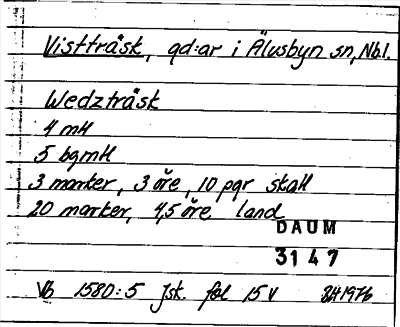 Vistträsk, gd:ar i Älvsbyn sn, Nbl.
Wedzträsk
4 mtl
5 bgmtl
3 marker, 3 öre, 10 pgr skatt
20 marker, 4,5 öre land
DAUM
3147
Vb 1580:5 Jsk. fol 15 v